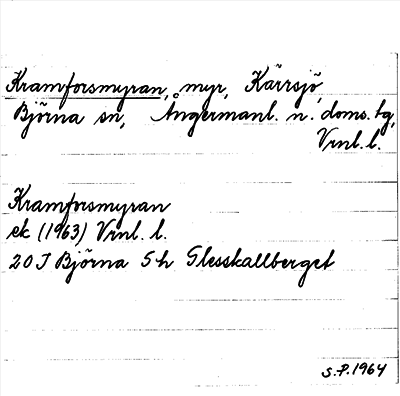 Kramforsmyran, myr, Kärrsjö,
Björna sn, Ångermanl. n. doms. tg,
Vrnl. l.
Kramforsmyran
ek (1963) Vrnl. l.
20 J Björna 5 h Flesskallberget
S.P. 1964